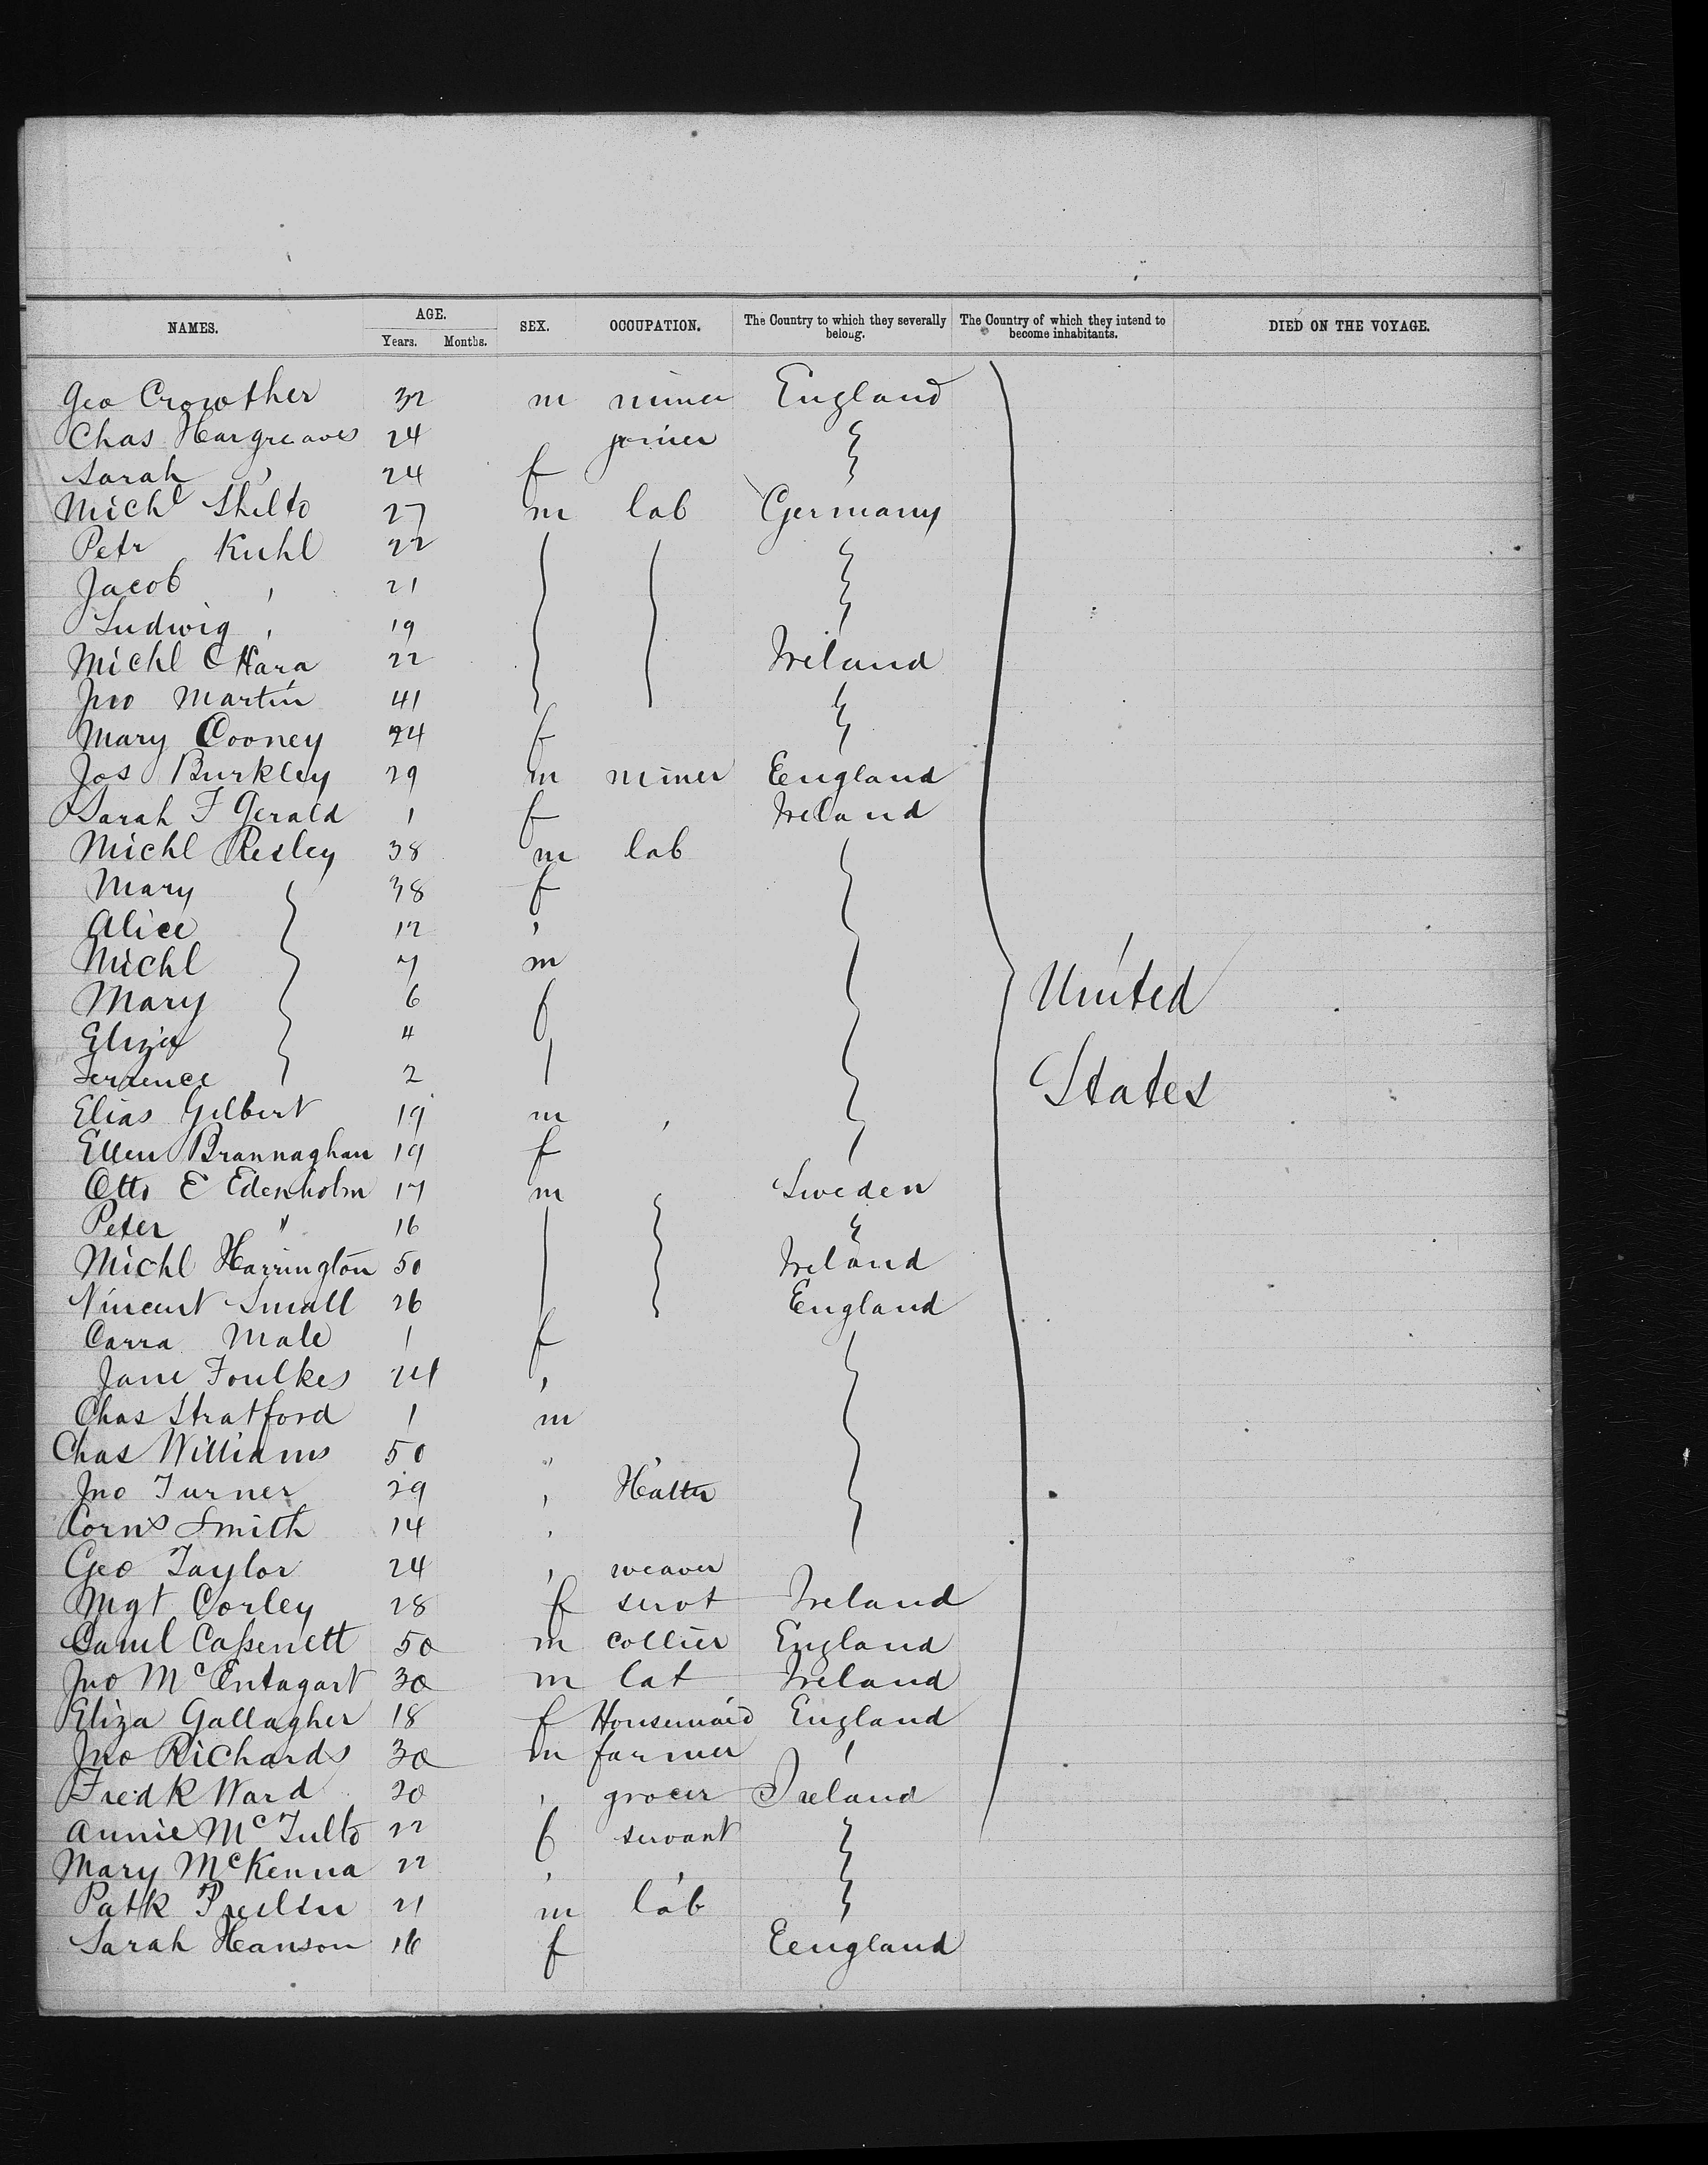 NAMES. AGE. Years. Months. SEX. OCCUPATION. The Country to which they severally belong. The Country of which they intend to become inhabitants. DIED ON THE VOYAGE.
Geo Crowther 32 m miner England
Chas Hargreaves 24 joiner
Sarah 24 f
Michl Shilto 27 m lab Germany
Petr Kuhl 22
Jacob , 21
Ludwig , 19
Michl O Hara 22 Ireland
Jno Martin 41
Mary Cooney 24 f
Jos Burkley 29 m miner England
Sarah F Gerald 1 f Ireland
Michl Resley 38 m lab
Mary 38 f
Alice 12 "
Michl 7 m
Mary 6 f
Eliza 4
Terrence 2
United
States
Elias Gilbert 19 m ,
Ellen Brannaghan 19 f
Otto E Edenholm 17 m Sweden
Peter " 16
Michl Harrington 50 Ireland
Vincent Small 26 England
Carra Male 1 f
Jane Foulkes 24 ,
Chas Stratford 1 m
Chas Williams 50 "
Jno Turner 29 , Hatter
Corns Smith 14 ,
Geo Taylor 24 , weaver
Mgt Corley 28 f servt Ireland
Saml 50 m collier England
Jno McEntagart 30 m lab Ireland
Eliza Gallagher 18 f Housemaid England
Jno Richards 30 m farmer "
Fredk Ward 20 , grocer Ireland
Annie McTulto 22 f servant
Mary McKenna 22 , ,
Patk 21 m lab
Sarah Hanson 16 f England